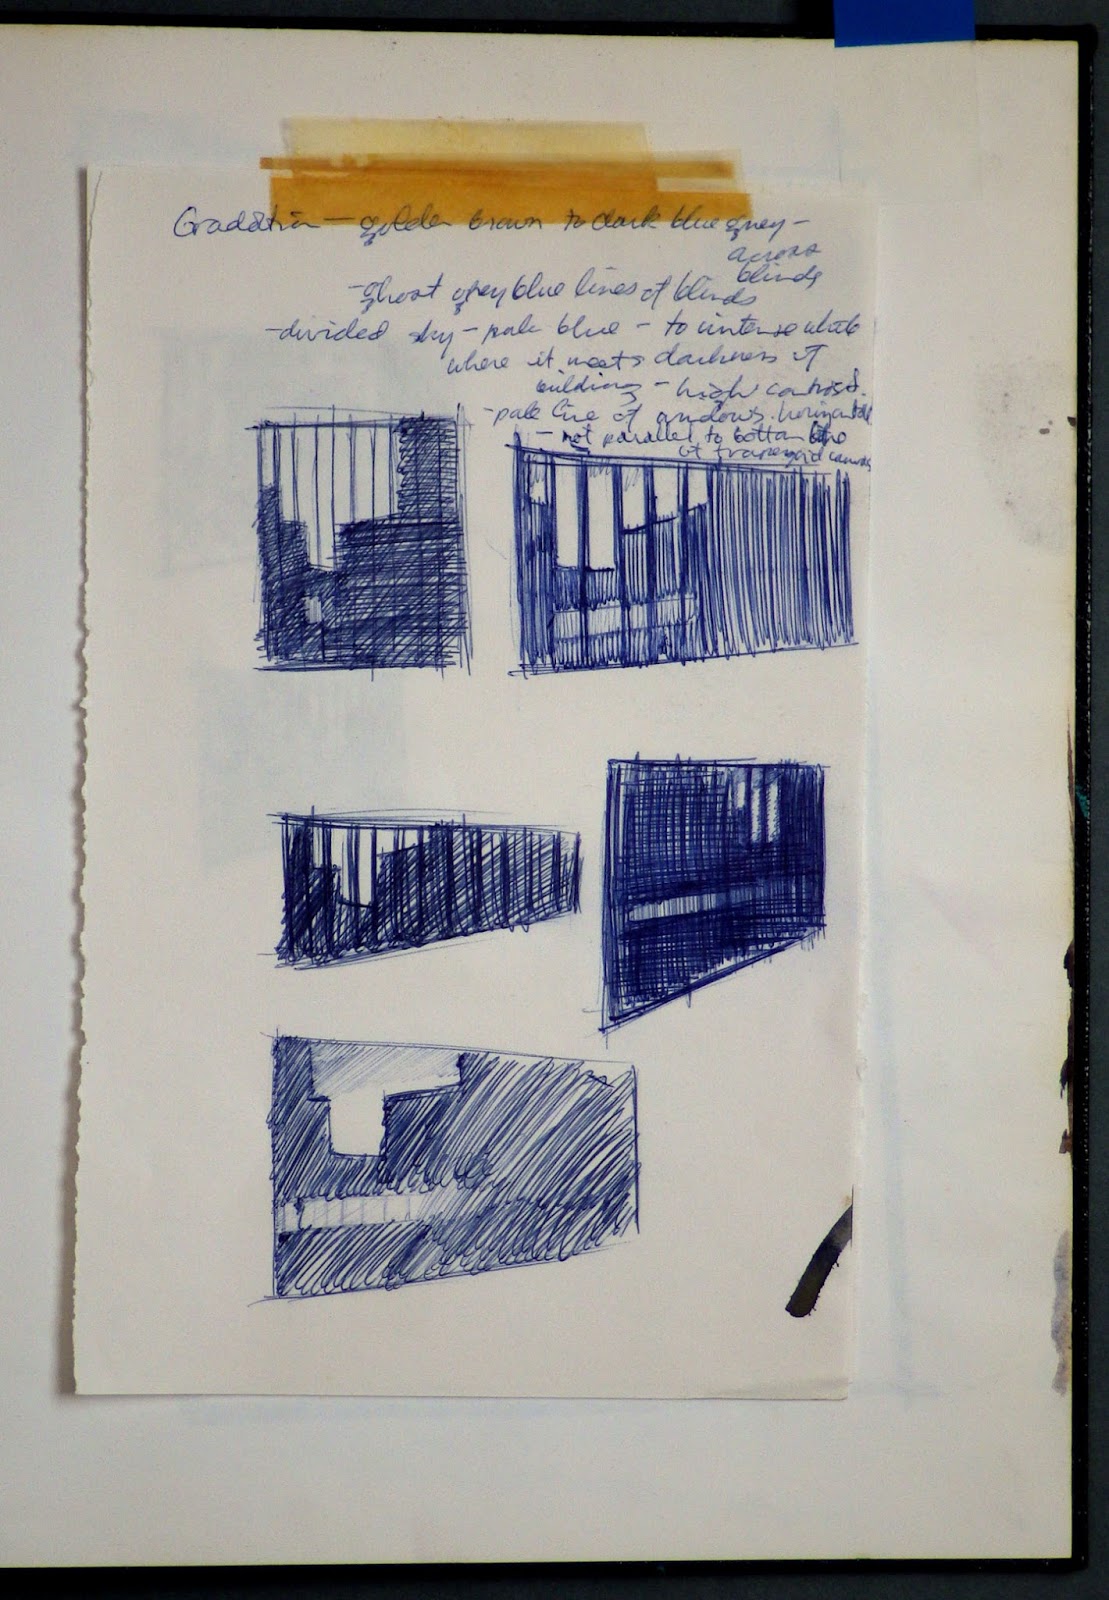 Gradation — golden brown to dark blue grey —
across
blinds
- ghost grey blue lines of blinds
- divided sky - pale blue - to intense white
where it meets darkness of
building - high contrast.
- pale line of windows. horizontal
- not parallel to bottom line
of trapezoid canvas